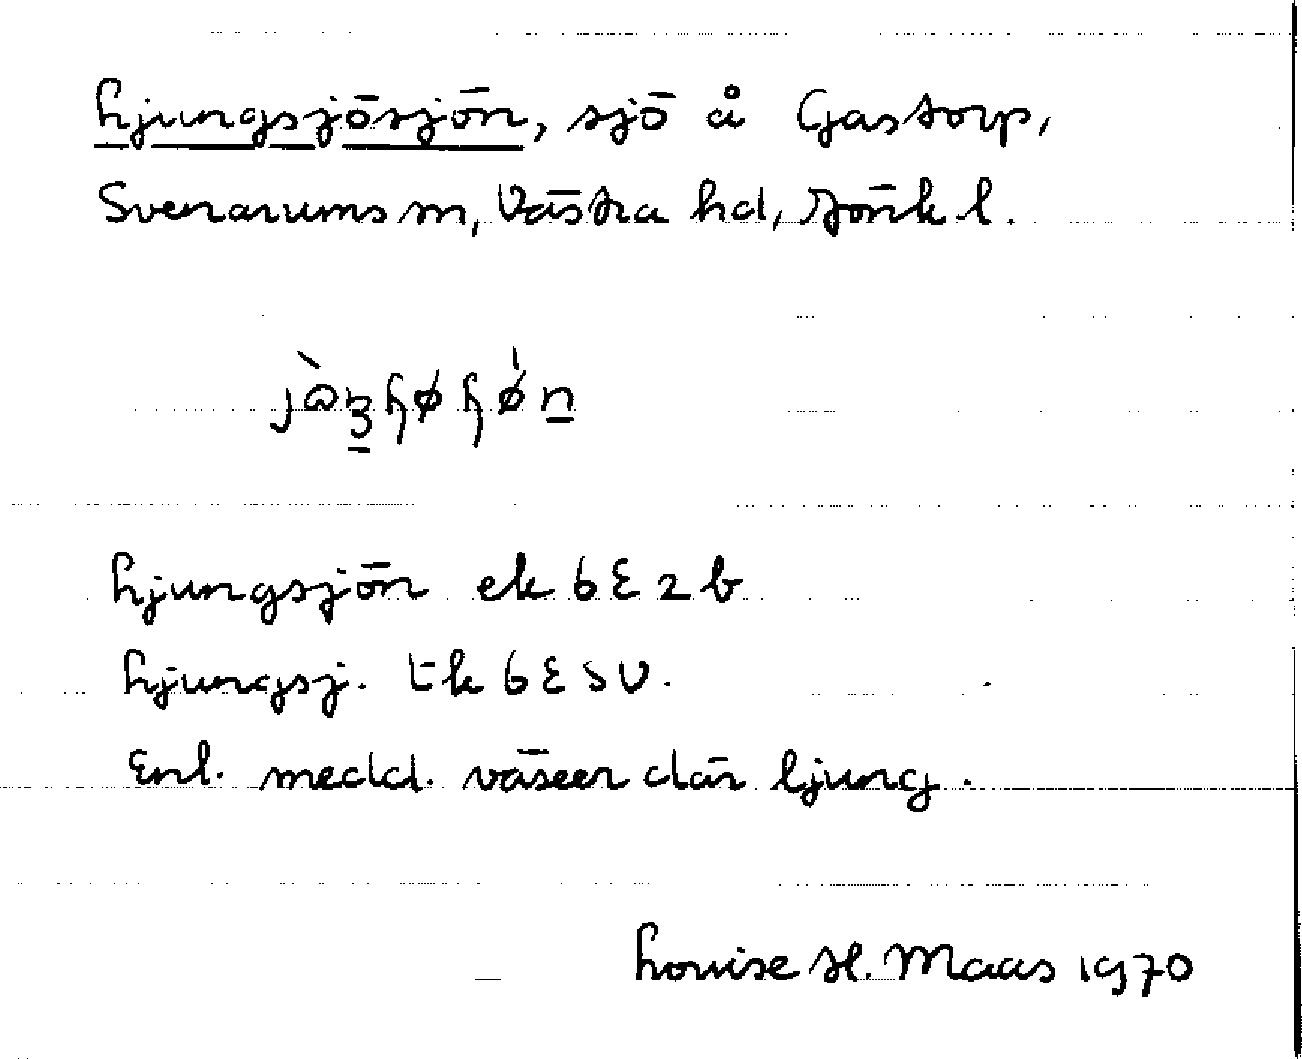 Ljungsjösjön, sjö å Gastorp,
Svenarums sn, Västra hd, Jönk l.
Ljungsjön ek 6E2b
Ljungsj. tk 6E SV.
Enl. medd. växer där ljung.
Louise H. Maas 1970